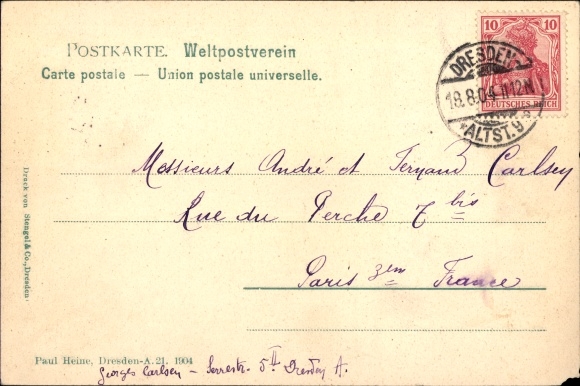 POSTKARTE. Weltpostverein
Carte postale — Union postale universelle.
10 10
DEUTSCHES REICH
DRESDEN-
18.8.04.11-12N
*ALTST.9
Messieurs André et Fernand Carlsey
Rue du Perche 7 bis
Paris 3em France
Druck von Stengel & Co., Dresden.
Paul Heine, Dresden-A. 21. 1904
Georges Carlsey — Serrestr. 5 II Dresden A.